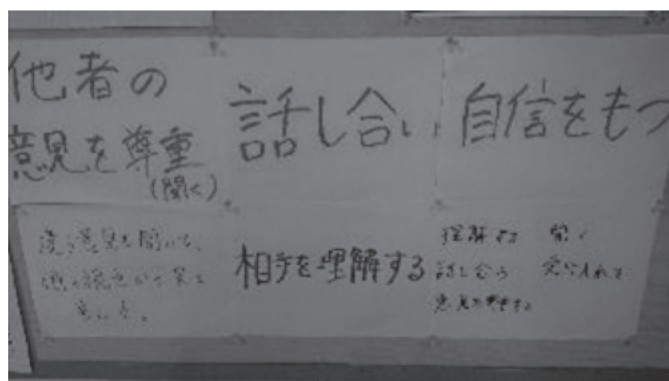 他者の
意見を尊重
(聞く)
話し合い
自信をもつ
意見を聞いて、
相手を理解する
理解する 聞く
話し合う 受け入れる
意見を